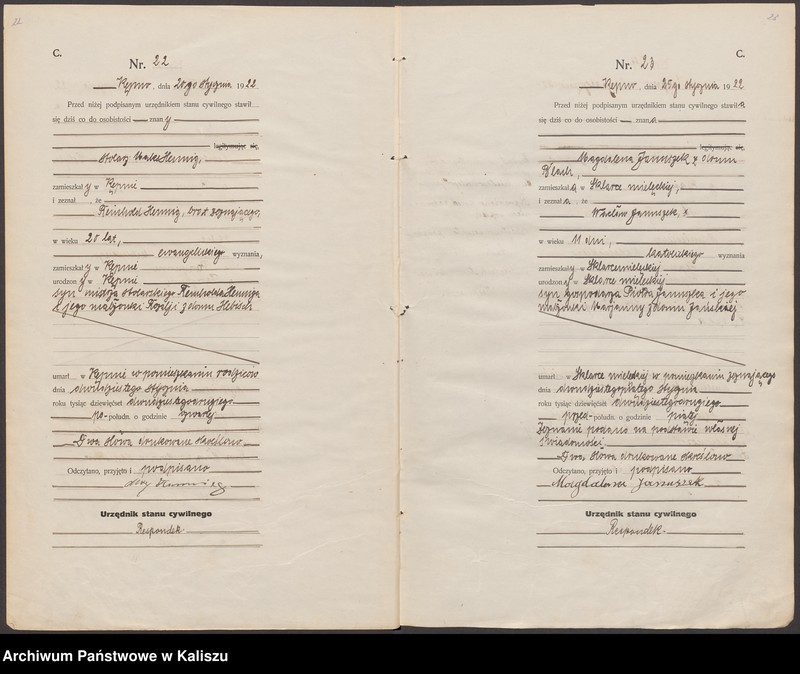 C.
Nr. 22
Kępno, dnia 21go stycznia 1922
Przed niżej podpisanym urzędnikiem stanu cywilnego stawił
się dziś co do osobistości — znany
legitymując się,
stolarz Hennig,
zamieszkały w Kępnie
i zeznał, że
Reinhold Hennig, brat zeznającego,
w wieku 20 lat,
ewangelickiego wyznania,
zamieszkały w Kępnie
urodzony w Kępnie
syn mistrza stolarskiego Reinholda Henniga
i jego małżonki z domu
umarł w Kępnie w pomieszkaniu rodziców
dnia dwudziestego stycznia
roku tysiąc dziewięćset dwudziestegodrugiego
po-połudn. o godzinie czwartej
Dwa słowa drukowane skreślono
Odczytano, przyjęto i podpisano
Hennig
Urzędnik stanu cywilnego
Respondek
C.
Nr. 23
Kępno, dnia 25go stycznia 1922
Przed niżej podpisanym urzędnikiem stanu cywilnego stawiła
się dziś co do osobistości — znana
legitymując się,
Magdalena Januszek z domu
zamieszkała w Sklarce mielęckiej,
i zeznała, że
Wacław Januszek,
w wieku 11 dni,
katolickiego wyznania
zamieszkały w Sklarce mielęckiej
urodzony w Sklarce mielęckiej
syn gospodarza Piotra Januszka i jego
małżonki Marjanny z domu
umarł w Sklarce mielęckiej w pomieszkaniu zeznającego
dnia dwudziestegopiątego stycznia
roku tysiąc dziewięćset dwudziestegodrugiego
przed-połudn. o godzinie piątej
Zeznanie podano na podstawie własnej
wiadomości.
Dwa słowa drukowane skreślono
Odczytano, przyjęto i podpisano
Magdalena Januszek
Urzędnik stanu cywilnego
Respondek.
Archiwum Państwowe w Kaliszu